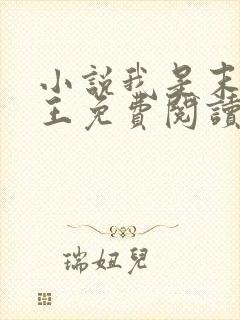 小說我是末
王免費閱讀
瑞妞兒